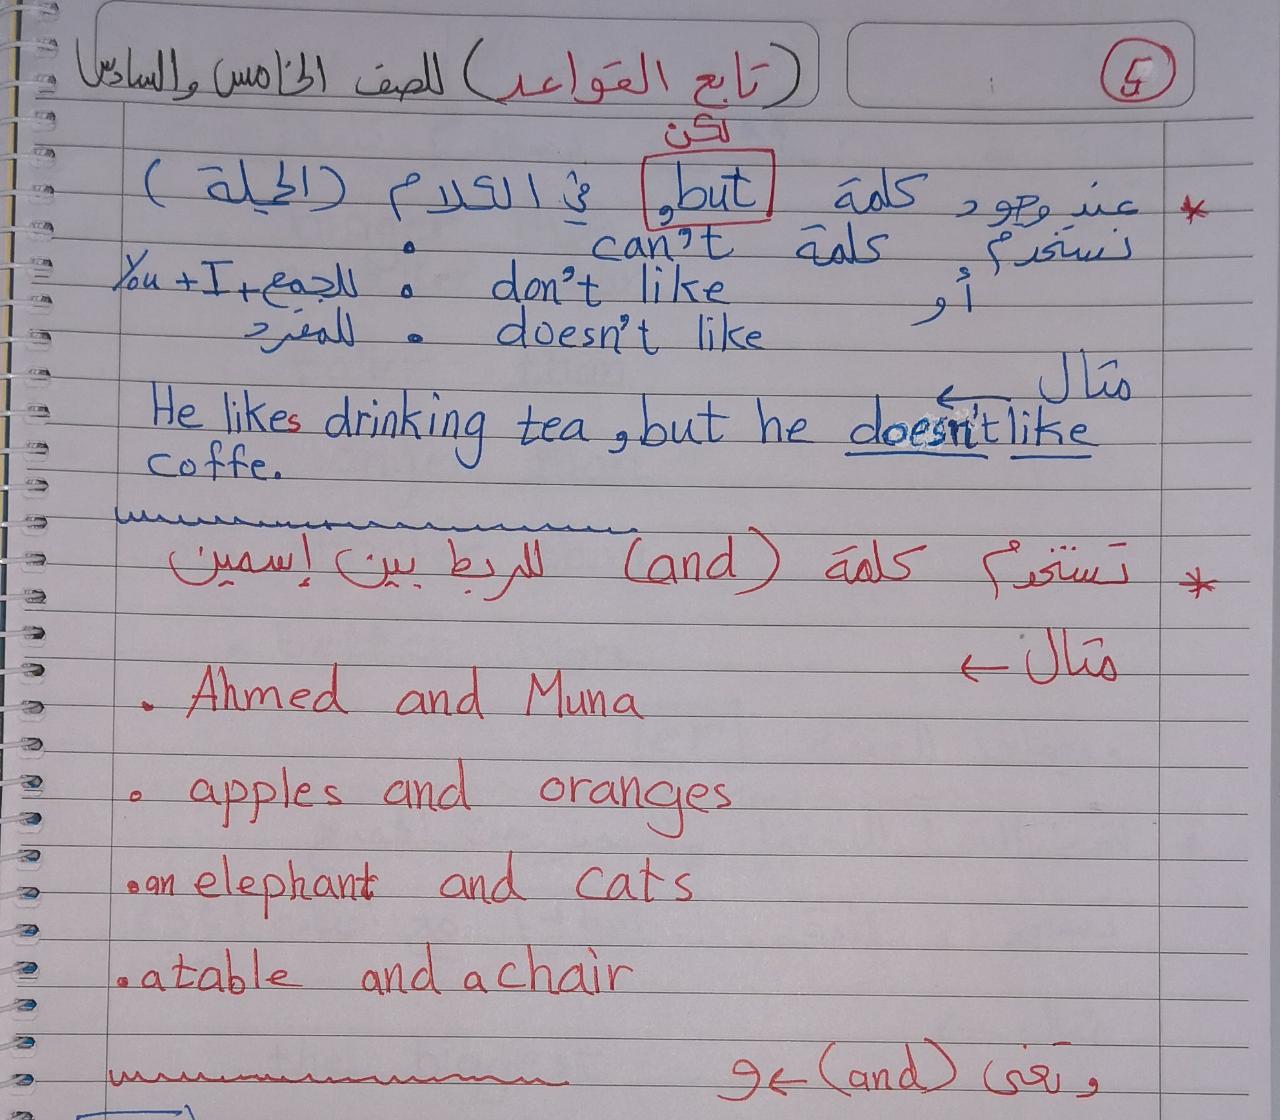 5
(تابع القواعد) للصف الخامس والسادس
لكن
* عند وجود كلمة ,but في الكلام (الجملة)
نستخدم كلمة can't
أو don't like • للجمع + You + I
doesn't like • للمفرد
مثال ←
He likes drinking tea , but he doesn't like
coffe.
* تستخدم كلمة (and) للربط بين إسمين
مثال ←
• Ahmed and Muna
• apples and oranges
• an elephant and cats
• a table and a chair
وتعني (and) ← و